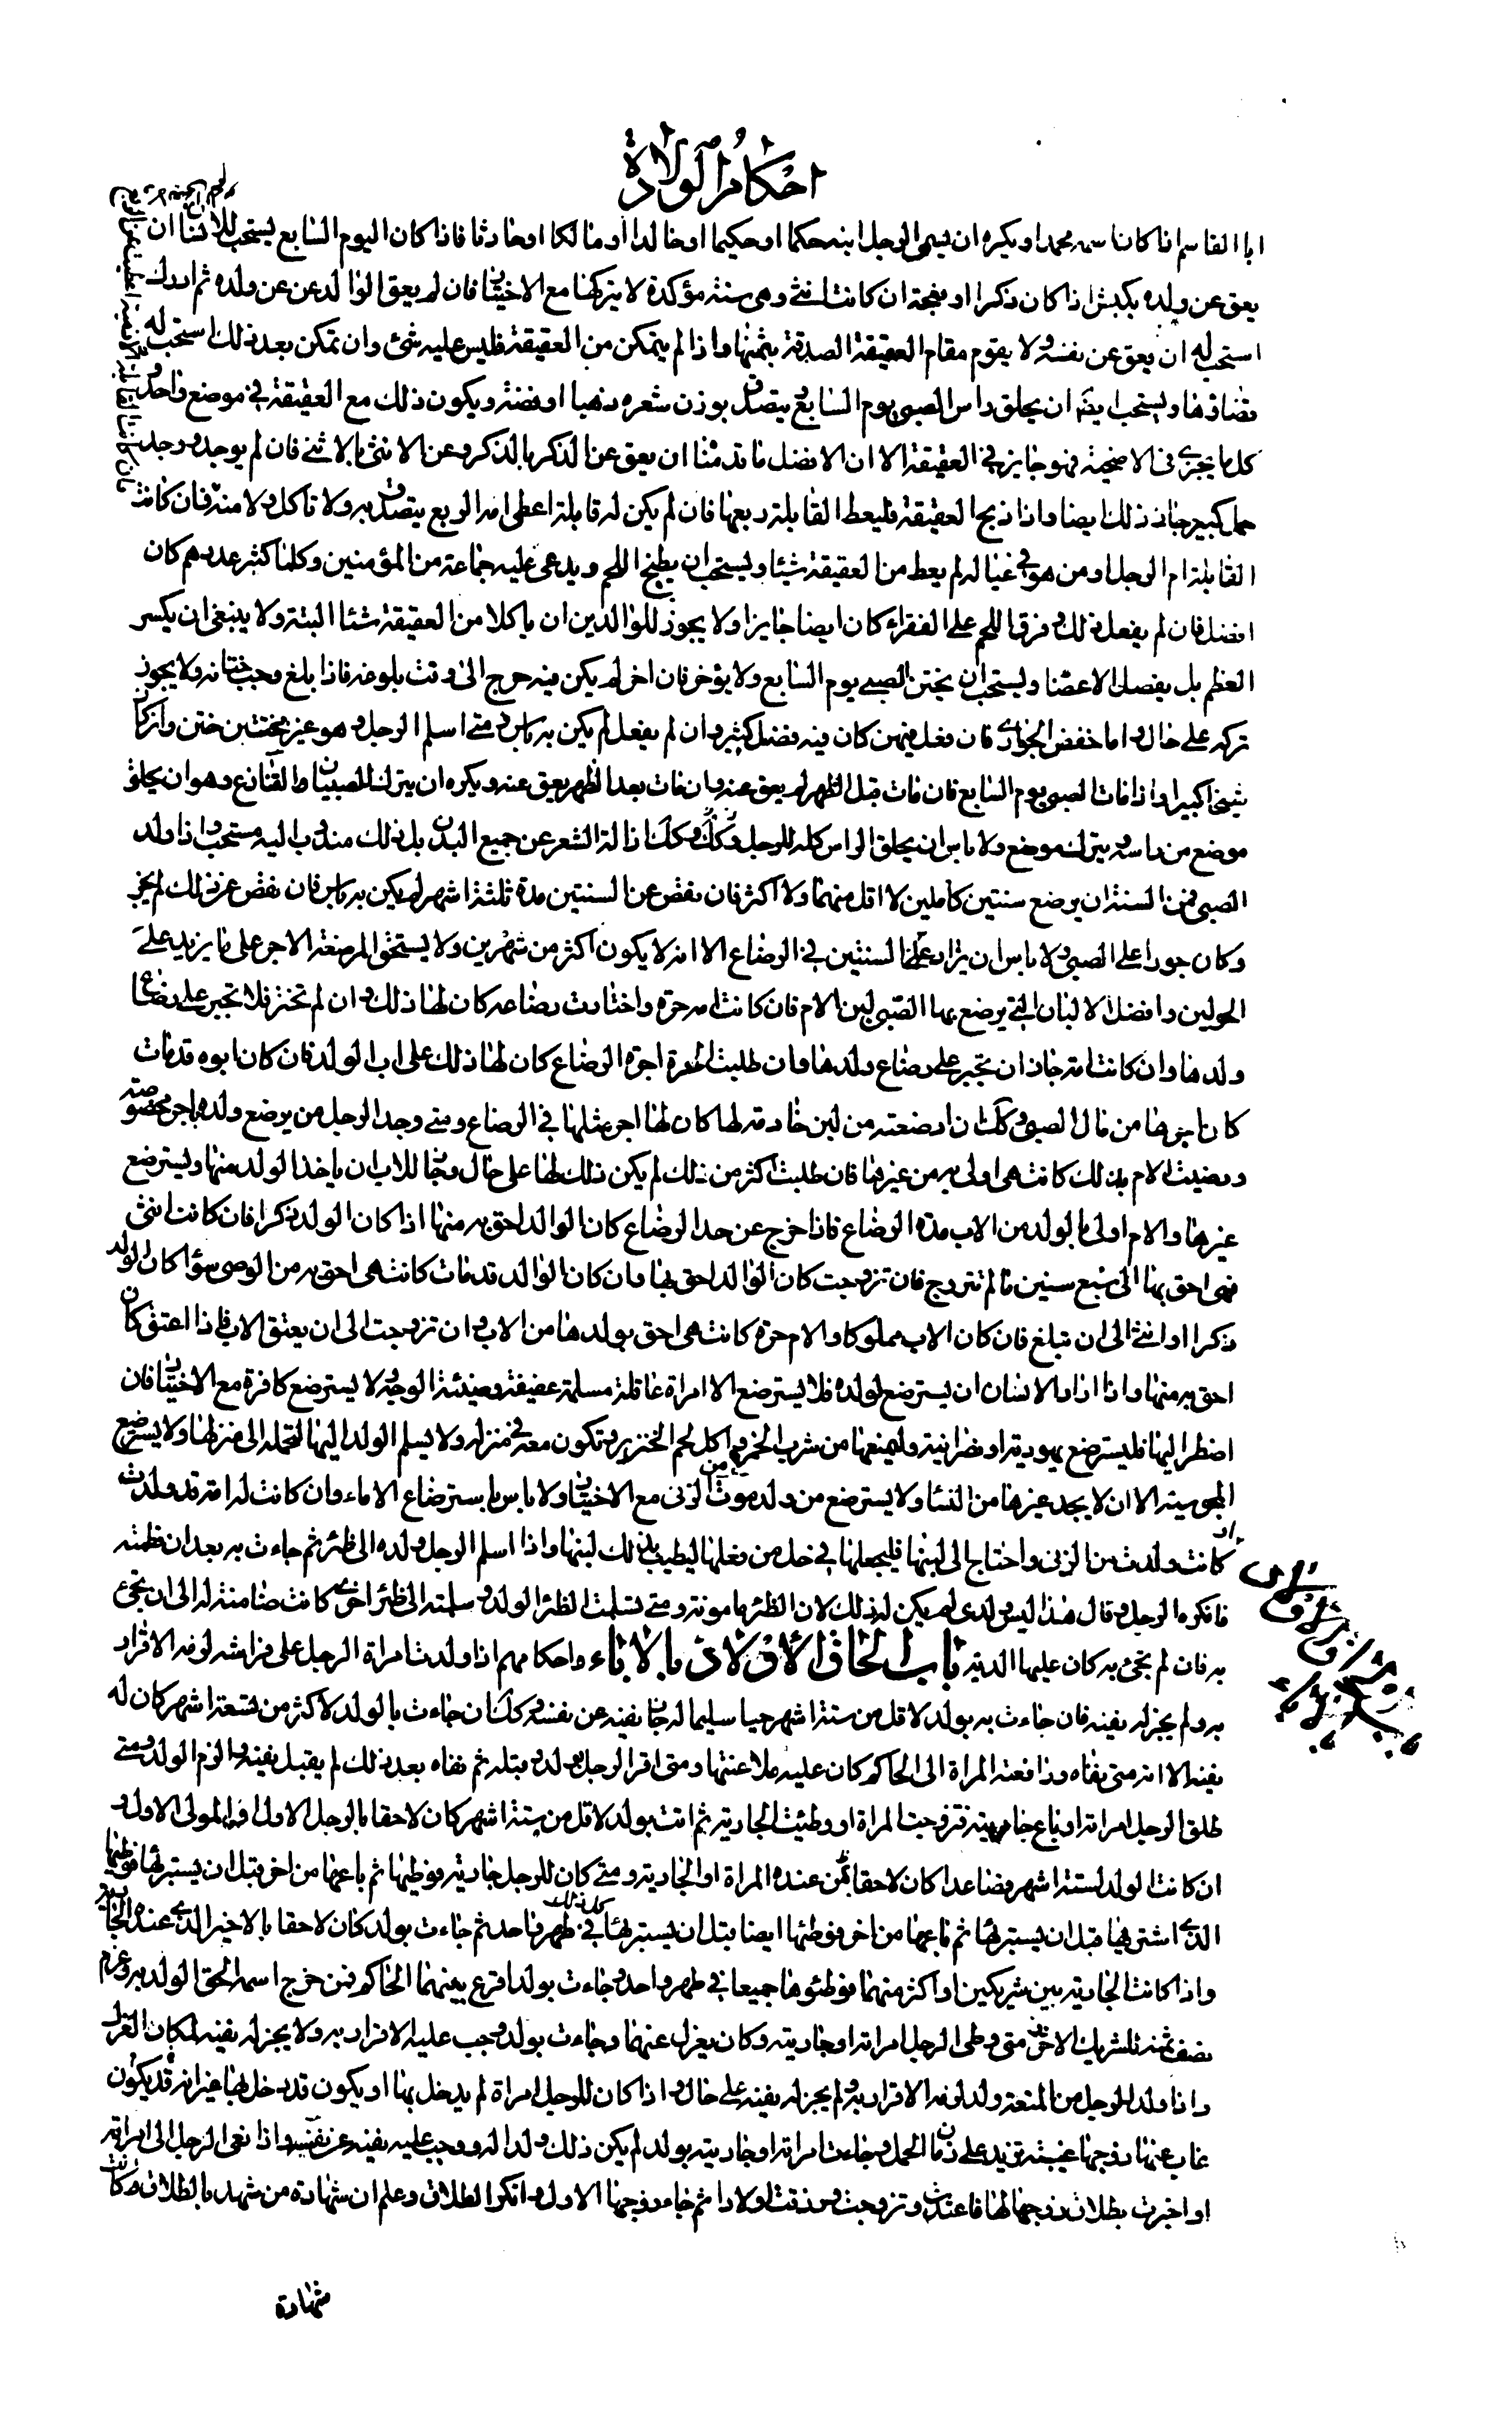 احكام الولادة
ابا القاسم اذا كان اسمه محمدا ويكره ان يسمى الرجل ابنه حكما او حكيما او خالدا او مالكا او حارثا فاذا كان اليوم السابع يستحب للانسان ان
يعق عن ولده بكبش اذا كان ذكرا او نعجة ان كانت انثى وهى سنة مؤكدة لا يتركها مع الاختيار فان لم يعق الوالد عن ولده ثم ادرك
استحب له ان يعق عن نفسه ولا يقوم مقام العقيقة الصدقة بثمنها واذا لم يتمكن من العقيقة فليس عليه شئ وان تمكن بعد ذلك استحب له
قضاؤها ويستحب ايضا ان يحلق راس الصبى يوم السابع ويتصدق بوزن شعره ذهبا او فضة ويكون ذلك مع العقيقة فى موضع واحد و
كل ما يجزى فى الاضحية فهو جايز فى العقيقة الا ان الافضل ما قدمنا ان يعق عن الذكر بالذكر وعن الانثى بالانثى فان لم يوجد ووجد
حمل كبير جاز ذلك ايضا واذا ذبح العقيقة فليعط القابلة ربعها فان لم يكن له قابلة اعطى امه الربع يتصدق به ولا تاكل الام منه فان كانت
القابلة ام الرجل او من هو فى عياله لم يعط من العقيقة شيئا ويستحب ان يطبخ اللحم ويدعى عليه جماعة من المؤمنين وكلما كثر عددهم كان
افضل فان لم يفعل ذلك وفرق اللحم على الفقراء كان ايضا جايزا ولا يجوز للوالدين ان ياكلا من العقيقة شيئا البتة ولا ينبغى ان يكسر
العظم بل يفصل الاعضا ويستحب ان يختن الصبى يوم السابع ولا يؤخر فان اخر لم يكن فيه حرج الى وقت بلوغه فاذا بلغ وجب ختانه ولا يجوز
تركه على حال واما خفض الجوارى فان فعل فيهن كان فيه فضل كثير وان لم يفعل لم يكن به باس ومتى اسلم الرجل وهو غير مختتن ختن وان كان
شيخا كبيرا واذا مات الصبى يوم السابع فان مات قبل الظهر لم يعق عنه وان مات بعد الظهر يعق عنه ويكره ان يترك للصبيان القنازع وهو ان يحلق
موضع من راسه ويترك موضع ولا باس ان يحلق الراس كله للرجل وكذلك ازالة الشعر عن جميع البدن بل ذلك مندوب اليه مستحب واذا ولد
الصبى فمن السنة ان يرضع سنتين كاملين لا اقل منهما ولا اكثر فان نقص عن السنتين مدة ثلثة اشهر لم يكن به باس فان نقص عن ذلك لم يجز
وكان جورا على الصبى ولا باس ان يزاد على السنتين فى الرضاع الا انه لا يكون اكثر من شهرين ولا يستحق المرضعة الاجر على ما يزيد على
الحولين وافضل الالبان التى يرضع بها الصبى لبن الام فان كانت امه حرة واختارت رضاعه كان لها ذلك وان لم تختر فلا تجبر على رضاع
ولدها وان كانت امة جاز ان تجبر على رضاع ولدها وان طلبت الحرة اجرة الرضاع كان لها ذلك على اب الولد فان كان ابوه قد مات
كان اجرها من مال الصبى وكذلك ان ارضعته من لبن خادمة لها كان لها اجر مثلها فى الرضاع ومتى وجد الرجل من يرضع ولده باجر مخصوصة
ورضيت الام بذلك كانت هى اولى به من غيرها فان طلبت اكثر من ذلك لم يكن ذلك لها على حال وجاز للاب ان ياخذ الولد منها ويسترضع
غيرها والام اولى بالولد من الاب مدة الرضاع فاذا خرج عن حد الرضاع كان الوالد احق به منها اذا كان الولد ذكرا فان كانت انثى
فهى احق بها الى سبع سنين ما لم تتزوج فان تزوجت كان الوالد احق بها وان كان الوالد قد مات كانت هى احق به من الوصى سوا كان الولد
ذكرا او انثى الى ان تبلغ فان كان الاب مملوكا والام حرة كانت هى احق بولدها من الاب وان تزوجت الى ان يعتق الاب فاذا اعتق كان
احق به منها واذا اراد الانسان ان يسترضع لولده فلا يسترضع الا امراة عاقلة مسلمة عفيفة وضيئة الوجه ولا يسترضع كافرة مع الاختيار فان
اضطر اليها فليسترضع يهودية او نصرانية وليمنعها من شرب الخمر واكل لحم الخنزير وتكون معه فى منزله ولا يسلم الولد اليها لتحمله الى منزلها ولا يسترضع
المجوسية الا ان لا يجد غيرها من النسا ولا يسترضع من ولدت من الزنى مع الاختيار ولا باس باسترضاع الاماء وان كانت له امة قد ولدت
كانت ولدت من الزنى واحتاج الى لبنها فليجعلها فى حل من فعلها ليطيب بذلك لبنها واذا اسلم الرجل ولده الى ظئر ثم جاءت به بعد ان فطمته
فانكره الرجل وقال هذا ليس ولدى لم يكن له ذلك لان الظئر مامونة ومتى تسلمت الظئر الولد وسلمته الى ظئر اخرى كانت ضامنة له الى ان تجئ
به فان لم تجئ به كان عليها الدية باب الحاق الاولاد بالاباء واحكامهم اذا ولدت امراة الرجل على فراشه لزمه الاقرار
به ولم يجز له نفيه فان جاءت به بولد لاقل من ستة اشهر حيا سليما له جاز نفيه عن نفسه وكذلك ان جاءت بالولد لاكثر من تسعة اشهر كان له
نفيه الا انه متى نفاه ورافعته المراة الى الحاكم كان عليه ملاعنتها ومتى اقر الرجل بولد وقبله ثم نفاه بعد ذلك لم يقبل نفيه والزم الولد ومتى
طلق الرجل امراته او باع جاريته فتزوجت المراة او وطئت الجارية ثم اتت بولد لاقل من ستة اشهر كان لاحقا بالرجل الاول او المولى الاول و
ان كانت الولد لستة اشهر فصاعدا كان لاحقا بمن عنده المراة او الجارية ومتى كان للرجل جارية فوطئها ثم باعها من اخر قبل ان يستبرئها فوطئها
الذى اشتريها قبل ان يستبرئها ثم باعها من اخر فوطئها ايضا قبل ان يستبرئها كل ذلك فى طهر واحد ثم جاءت بولد كان لاحقا بالاخير الذى عنده الجارية
واذا كانت الجارية بين شريكين او اكثر منهما فوطئوها جميعا فى طهر واحد وجاءت بولد اقرع بينهما الحاكم فمن خرج اسمه الحق الولد به وغرم
نصف ثمنه للشريك الاخر متى وطى الرجل امراته او جاريته وكان يعزل عنهما وجاءت بولد وجب عليه الاقرار به ولا يجز له نفيه لمكان العزل
واذا ولد للرجل من المتعة ولد لزمه الاقرار به ولم يجز له نفيه على حال واذا كان للرجل امراة لم يدخل بها او يكون قد دخل بها غير انه قد يكون
غاب عنها زوجها غيبة تزيد على زمان الحمل وجاءت امراته او جاريته بولد لم يكن ذلك ولدا له ووجب عليه نفيه عن نفسه واذا نعى الرجل الى امراته
او اخبرت بطلاق زوجها لها فاعتدت وتزوجت ورزقت اولادا ثم جاء زوجها الاول وانكر الطلاق وعلم ان شهادة من شهد بالطلاق كانت
شهادة